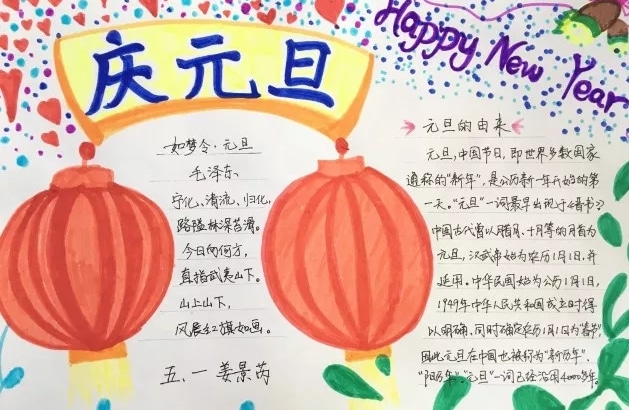 庆元旦
Happy New Year
如梦令·元旦
毛泽东
宁化、清流、归化,
路隘林深苔滑。
今日向何方,
直指武夷山下。
山下山下,
风展红旗如画。
五、一 姜景芮
元旦的由来
元旦,中国节日,即世界多数国家
通称的“新年”,是公历新一年开始的第
一天。“元旦”一词最早出现于《晋书》。
中国古代曾以腊月、十月等的月首为
元旦,汉武帝始为农历1月1日,并
延用。中华民国始为公历1月1日,
1949年中华人民共和国成立时得
以明确,同时确定农历1月1日为“春节”,
因此元旦在中国也被称为“新历年”、
“阳历年”。“元旦”一词已经沿用4000多年。